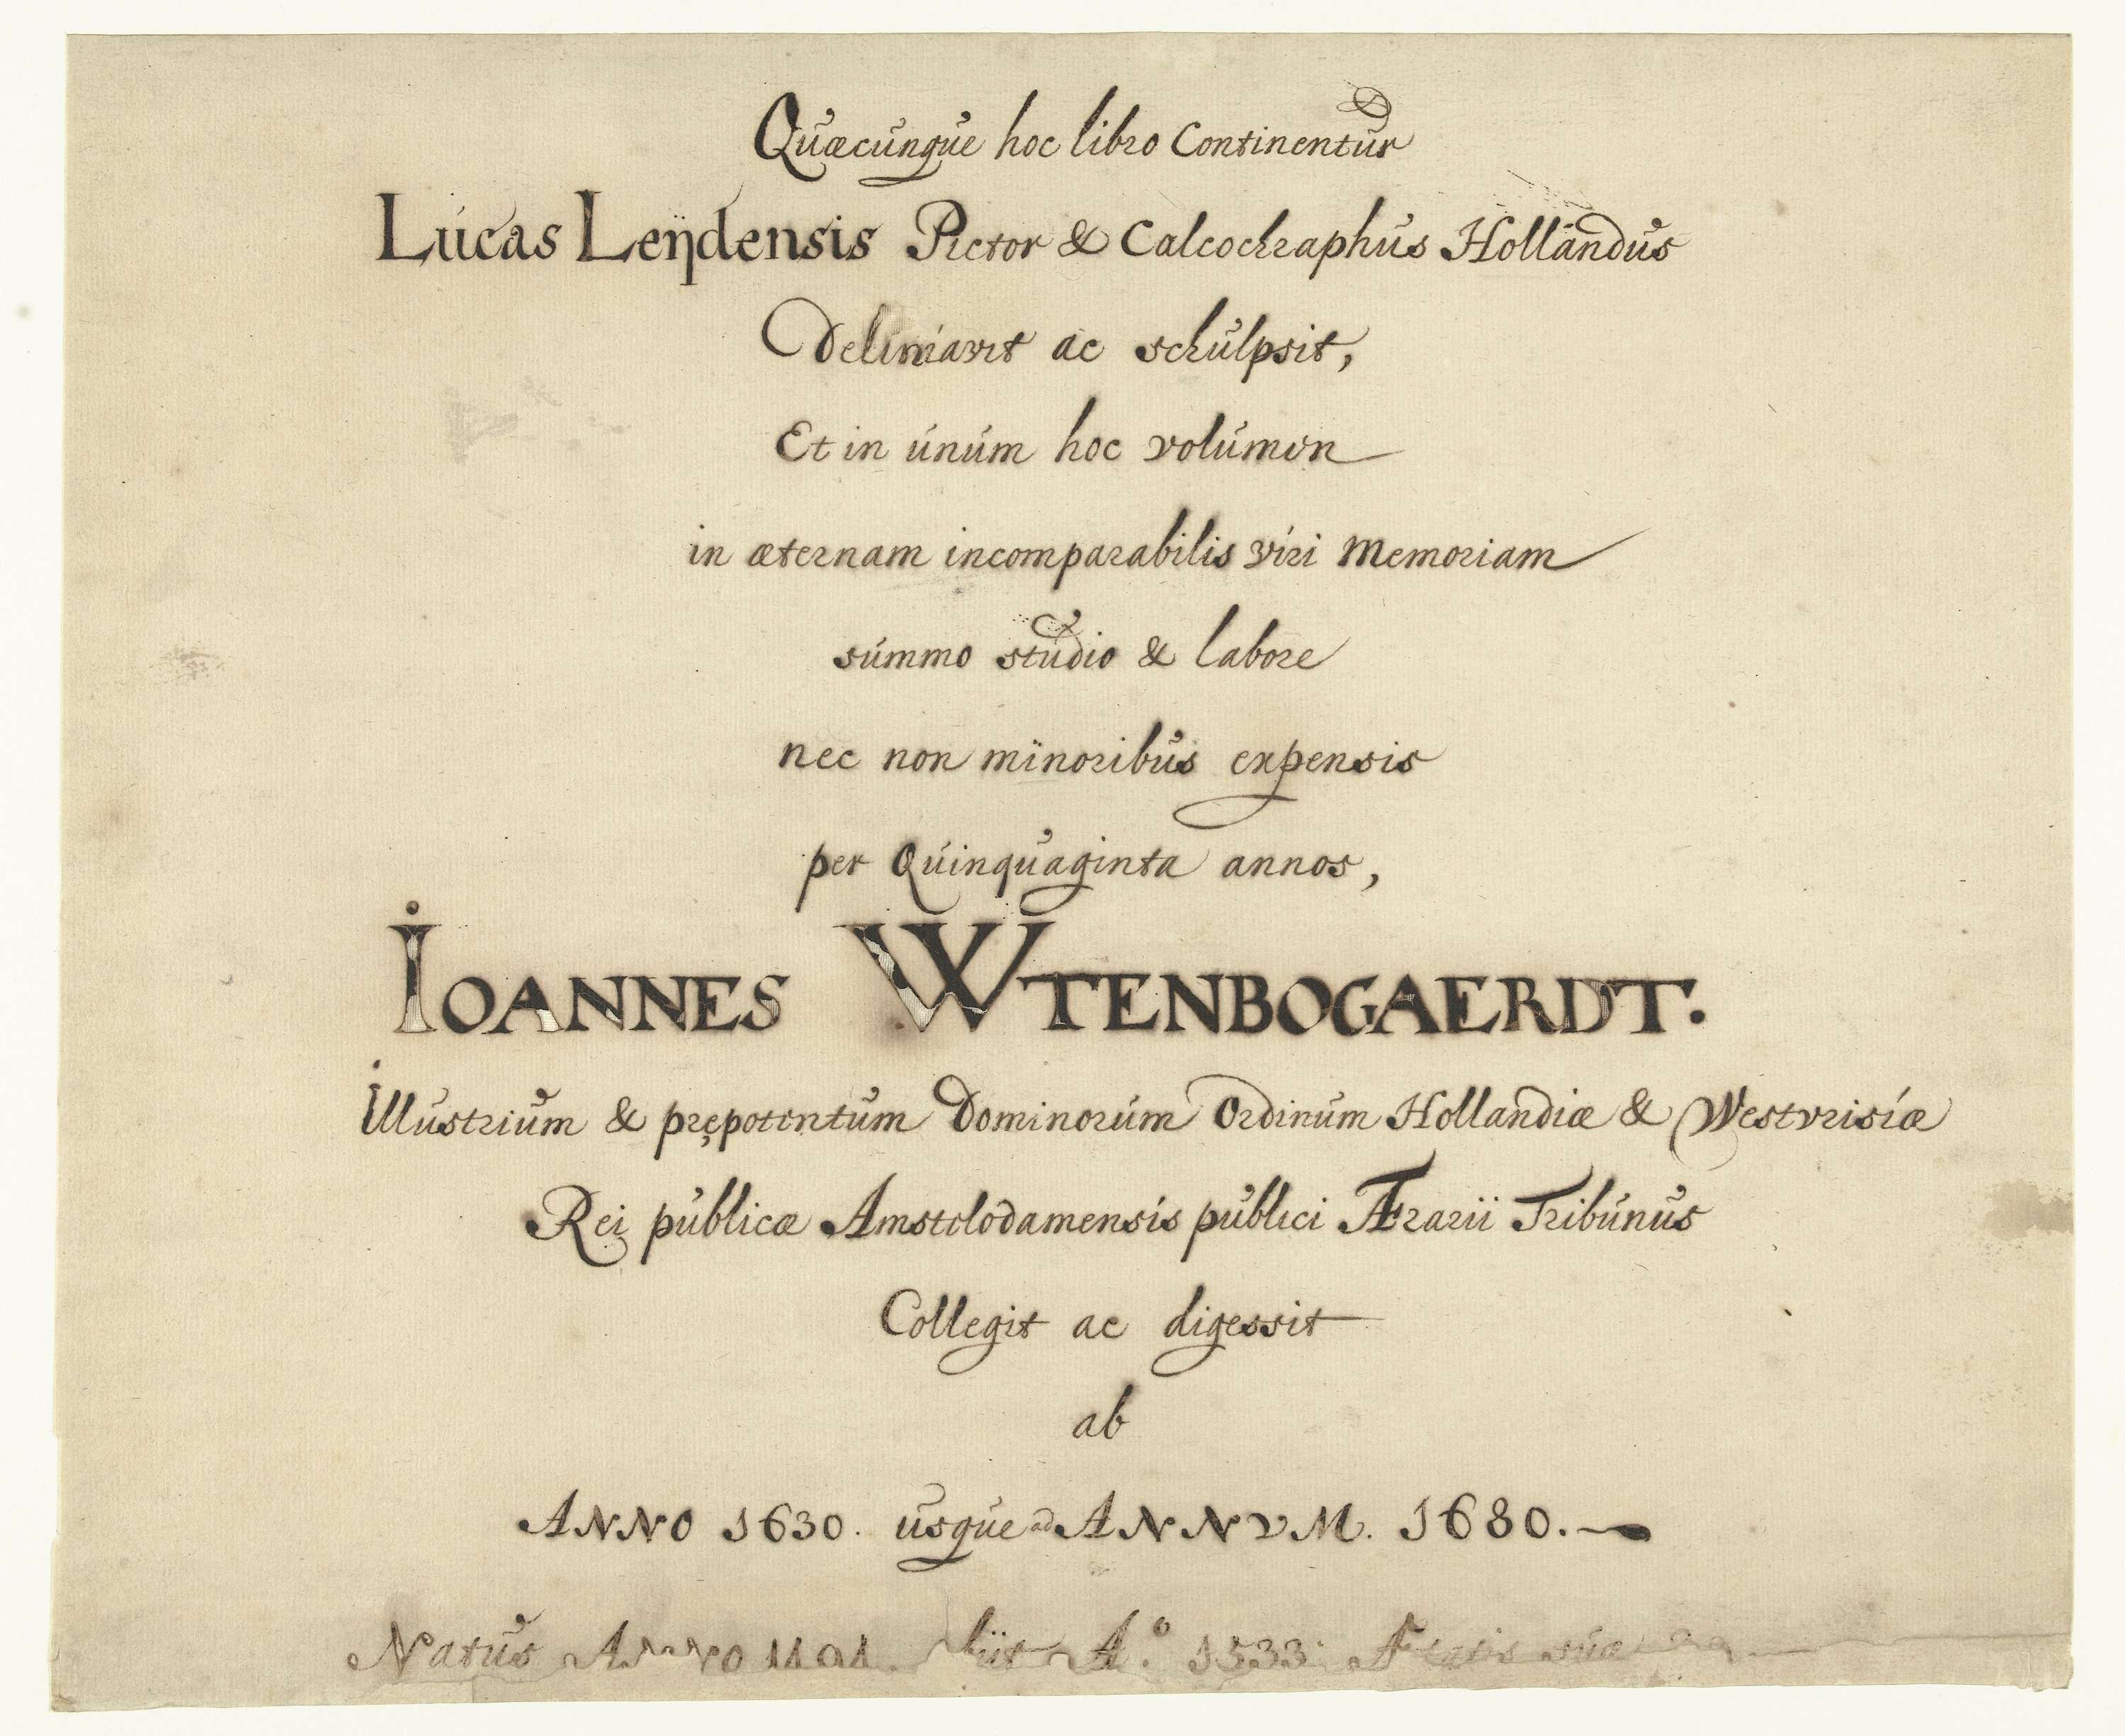 Quæcunque hoc libro Continentur
Lucas Leÿdensis Pictor & Calcochraphus Hollandus
Deliniavit ac schulpsit,
Et in unum hoc volumen
in æternam incomparabilis viri Memoriam
summo studio & labore
nec non minoribus expensis
per Quinquaginta annos,
IOANNES WTENBOGAERDT.
Illustrium & prępotentum Dominorum Ordinum Hollandiæ & Westvrisiæ
Rei publicæ Amstelodamensis publici Ærarii Tribunus
Collegit ac digessit
ab
ANNO 1630. usque ad ANNVM. 1680.
Natus Anno A.º 1533. Ætatis suæ